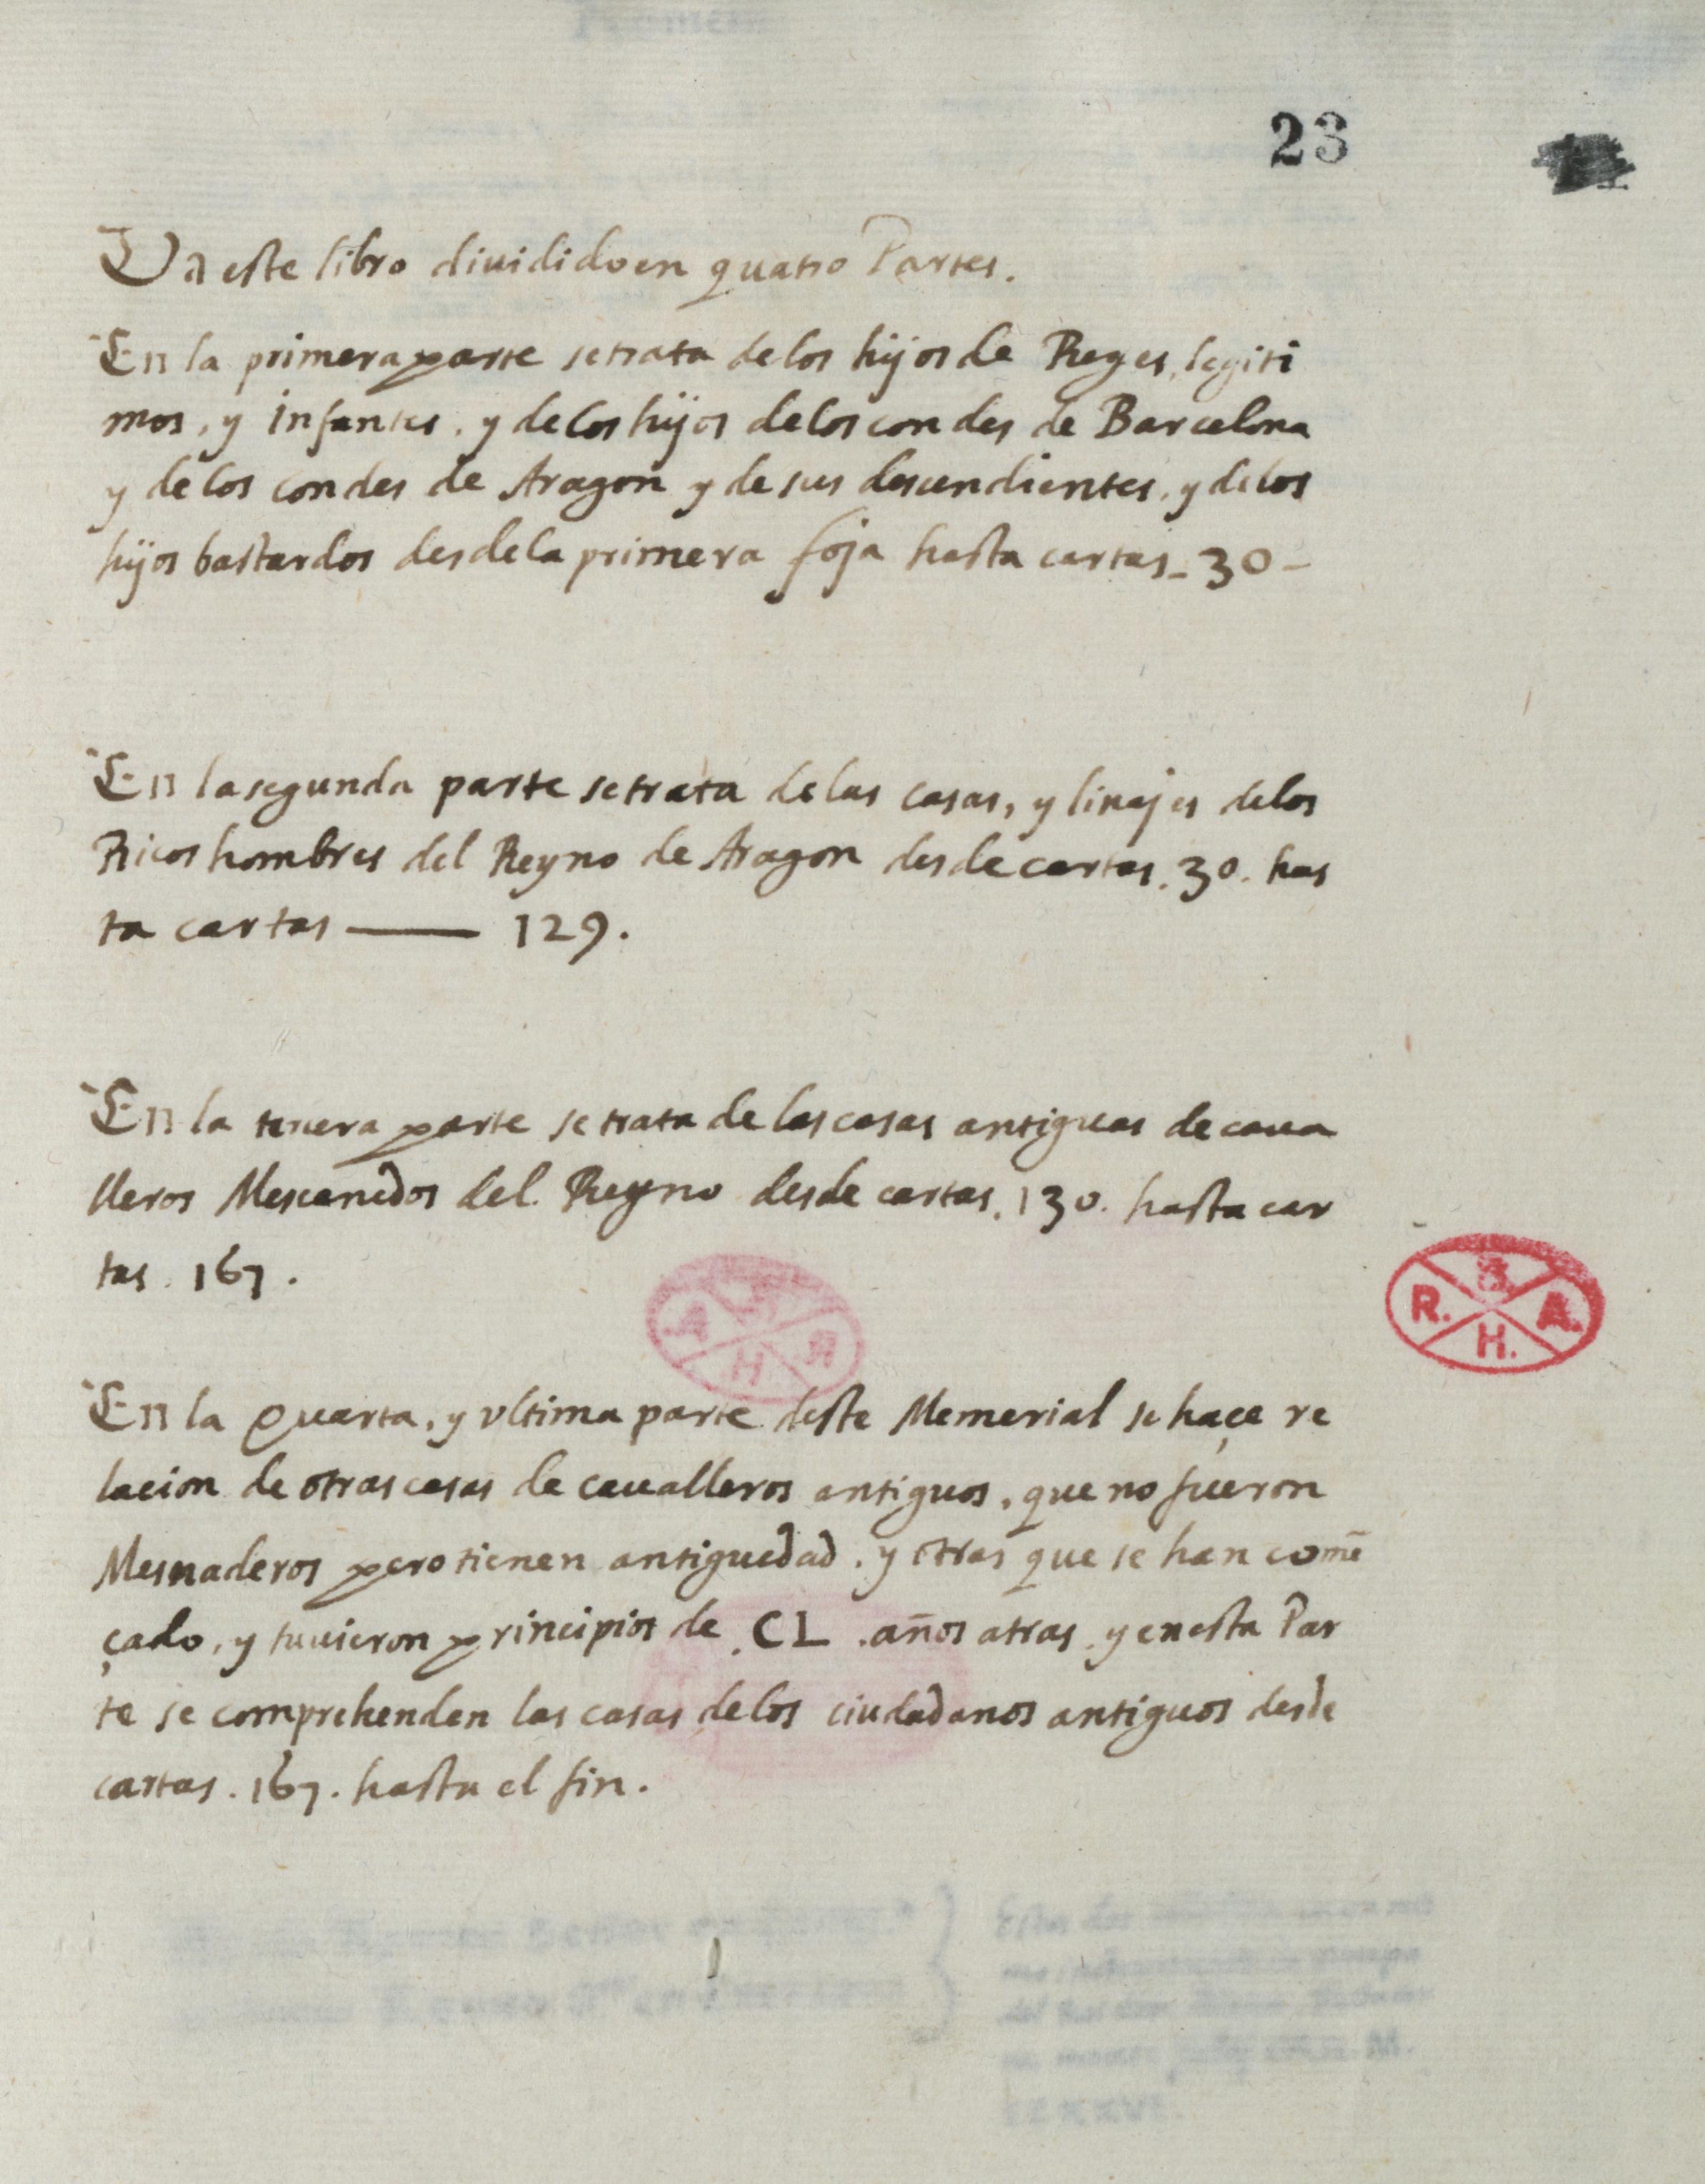 23
Va este libro diuidido en quatro Partes.
En la primera parte se trata de los hijos de Reyes, legiti
mos, y infantes, y de los hijos de los condes de Barcelona
y de los condes de Aragon y de sus descendientes, y de los
hijos bastardos desde la primera foja hasta cartas - 30 -
En la segunda parte se trata de las casas, y linajes de los
Ricos hombres del Reyno de Aragon desde cartas. 30. has
ta cartas — 129.
En la tercera parte se trata de las casas antiguas de caua
lleros Mesnaderos del Reyno desde cartas. 130. hasta car
tas. 167.
R. B. A. H.
En la quarta, y vltima parte deste Memerial se haçe re
lacion de otras casas de caualleros antiguos, que no fueron
Mesnaderos pero tienen antiguedad. y otras que se han comẽ
çado, y tuuieron principios de .CL. años atras, y en esta Par
te se comprehenden las casas de los ciudadanos antiguos desde
cartas. 167. hasta el fin.